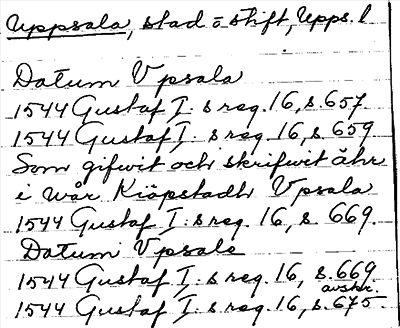 Uppsala, stad o stift, Upps. l
Datum Vpsala
1544 Gustaf I:s reg. 16, s. 657.
1544 Gustaf I:s reg. 16, s. 659
Som gifwit och skrifwit ähr
i wår Kiöpstadh Vpsala
1544 Gustaf I:s reg. 16, s. 669.
Datum Vpsale
1544 Gustaf I:s reg. 16, s. 669
avskr.
1544 Gustaf I:s reg. 16, s. 675.